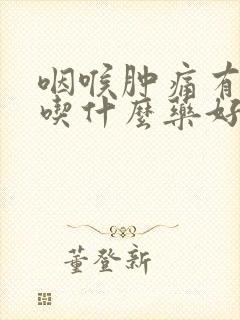 咽喉肿痛有
喫什麼藥好
董登新